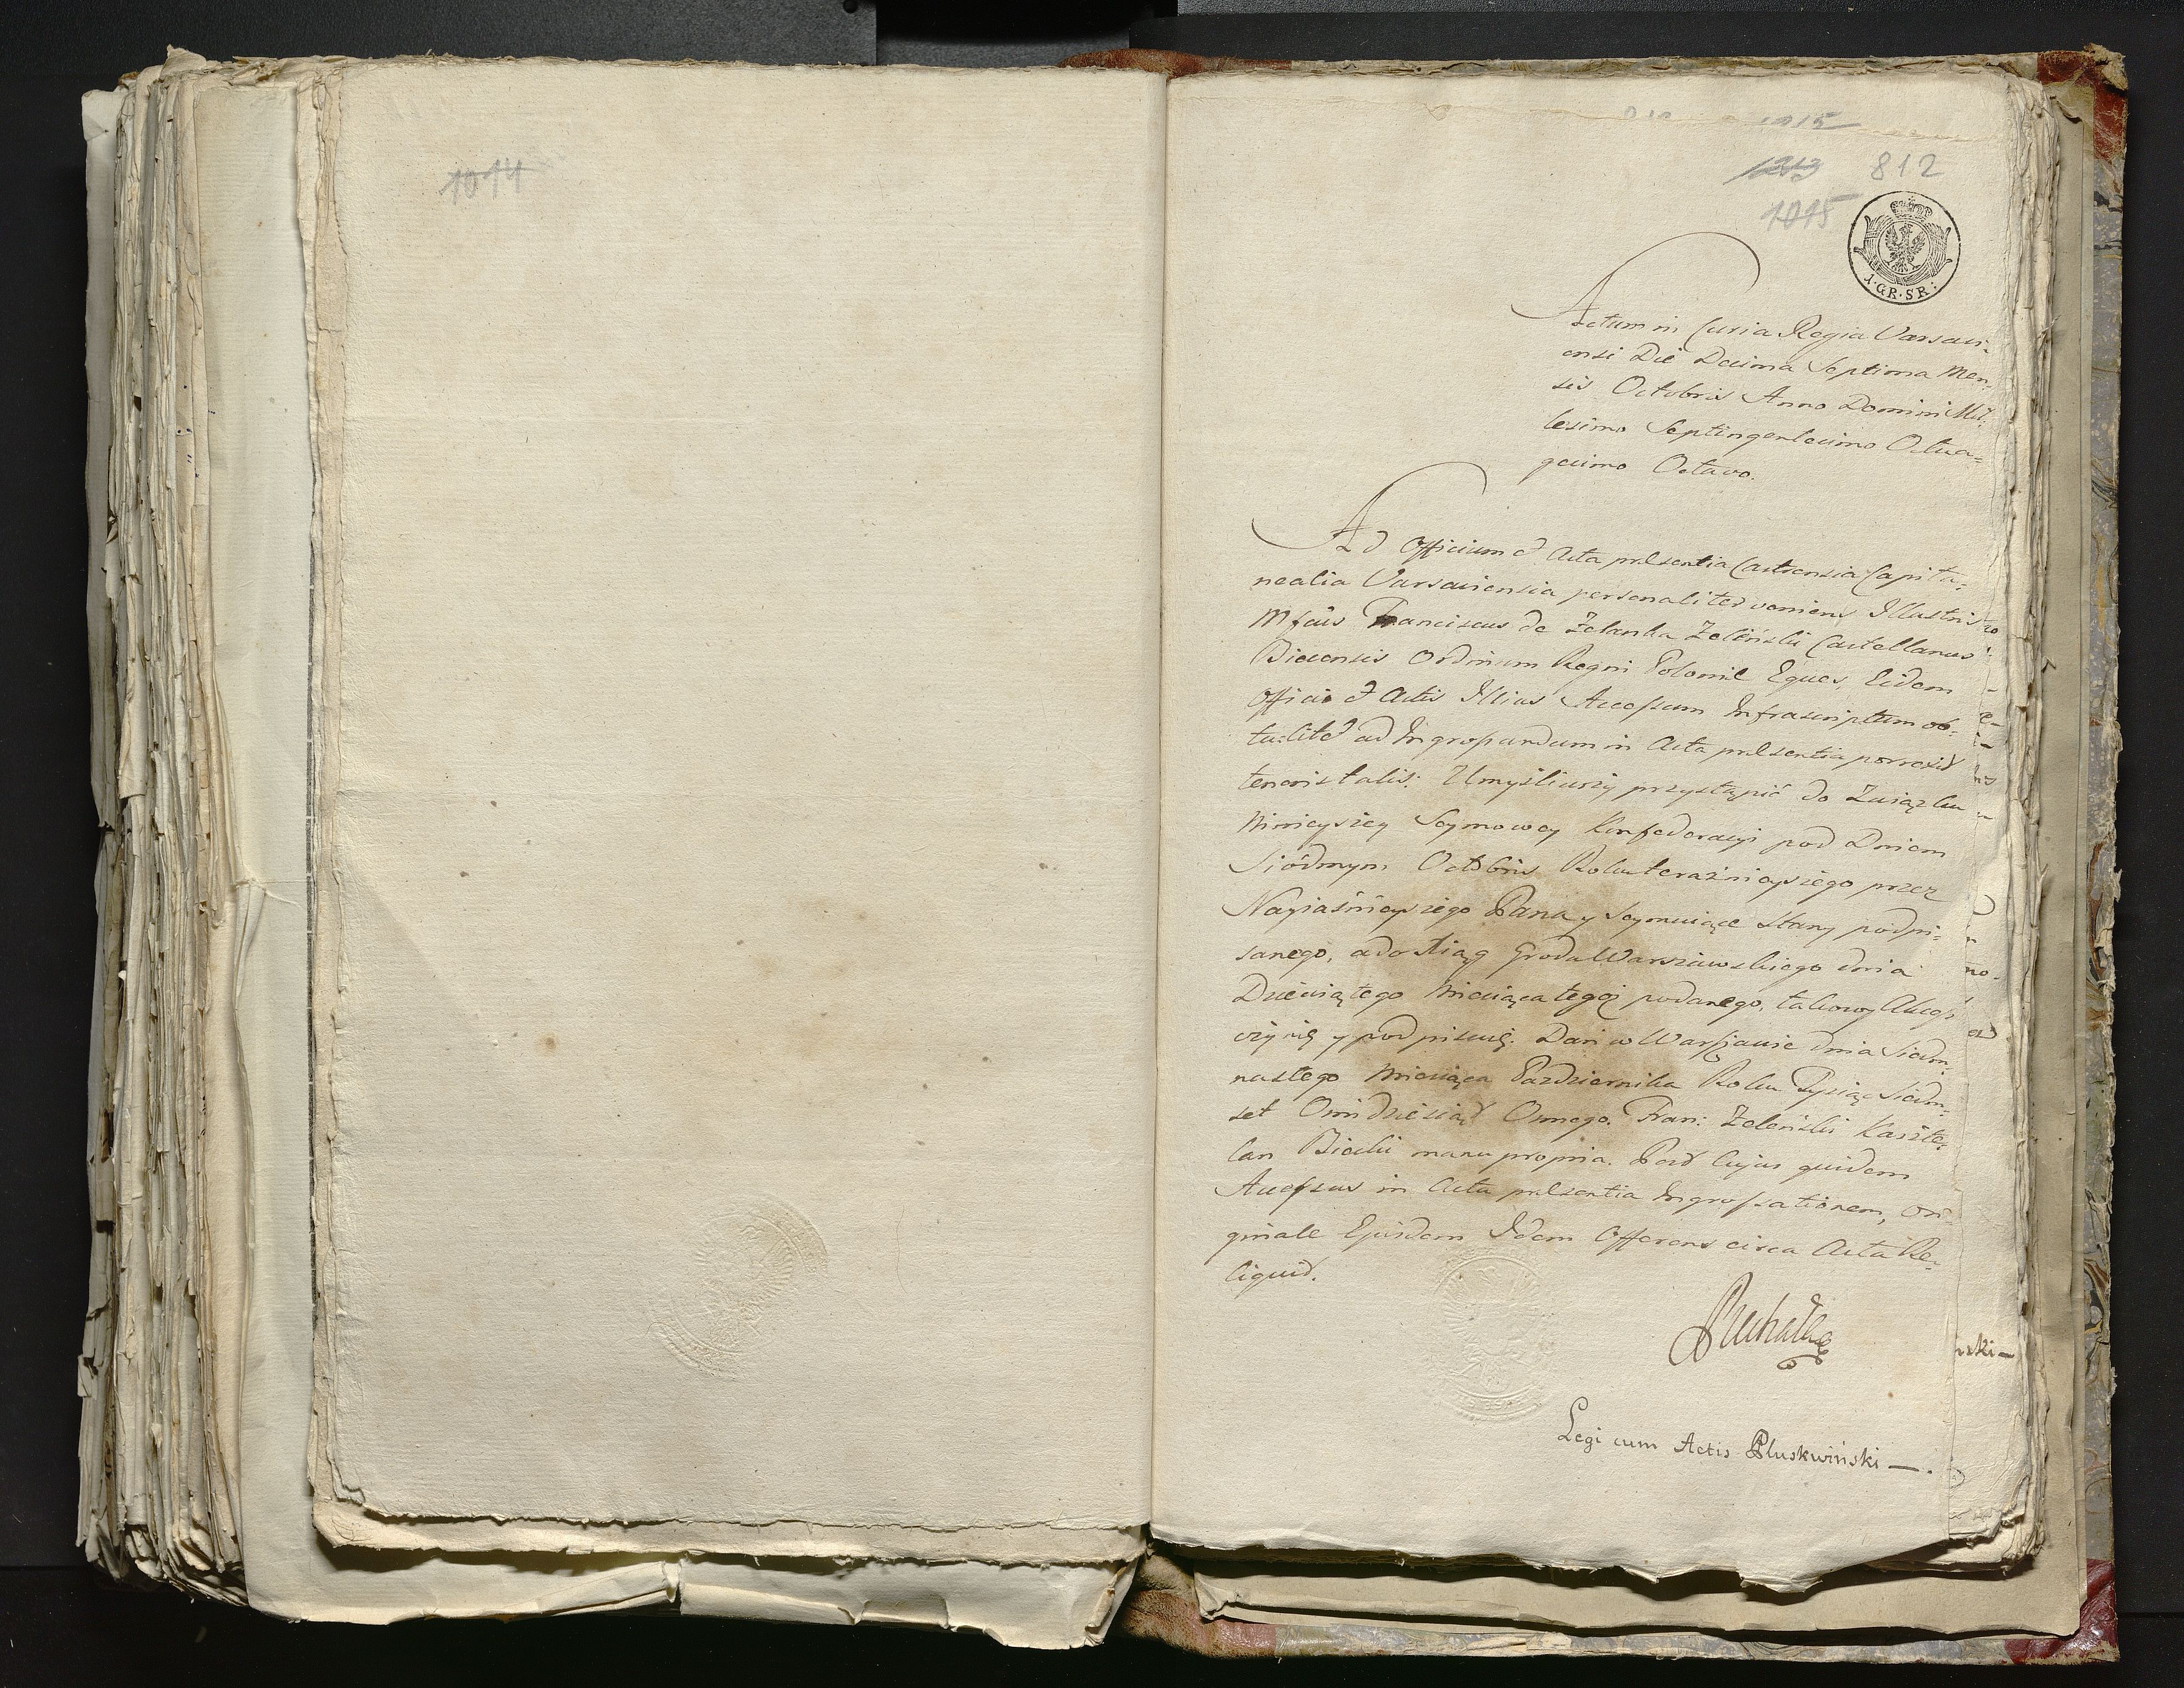 1014
1015
1213 812
1015
1·GR·SR:
Actum in Curia Regia Varsavi=
ensi Die Decima Septima Men=
sis Octobris Anno Domini Mil=
lesimo Septingentesimo Octua=
gesimo Octavo.
Ad Officium et Acta præsentia Castrensia Capita=
nealia Varsaviensia personaliter veniens Illustris
Mfcus Franciscus de Zelanka Zeleński Castellanus
Biecensis Ordinum Regni Poloniæ Eques, Eidem
Officio et Actis Illius Accessum Infrascriptum ob=
tulit et ad Ingrossandum in Acta præsentia porrexit
tenoris talis: Umyśliwszy przystąpić do Związku
Ninieyszey Seymowey Konfederacyi pod Dniem
Siódmym Octobris Roku teraźnieyszego przez
Nayiaśnieyszego Pana y Seymuiące Stany podpi=
sanego, a do Xiąg Grodu Warszawskiego dnia
Dziewiątego Miesiąca tegoż podanego, takowy Akces
czynię y podpisuię. Dan w Warszawie dnia Siedm=
nastego Miesiąca Pazdziernika Roku Tysiąc Siedm=
set Osmdziesiąt Osmego. Fran: Zeleński Kaszte=
lan Biecki manu propria. Post Cujus quidem
Accessus in Acta præsentia Ingrossationem, ori=
ginale Ejusdem Idem Offerens circa Acta Re=
liquit.
Legi cum Actis Pluskwiński —.